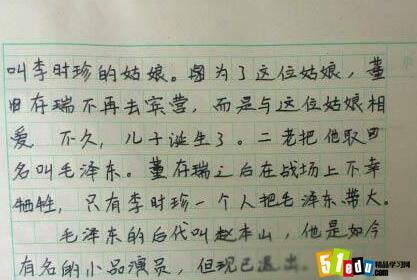 叫李时珍的姑娘。因为了这位姑娘，董
存瑞不再去宾营，而是与这位姑娘相
爱 不久，儿子诞生了。二老把他取
名叫毛泽东。董存瑞之后在战场上不幸
牺牲，只有李时珍一个人把毛泽东带大。
毛泽东的后代叫赵本山，他是如今
有名的小品演员，但现已退出。
51edu
精品学习网
.com